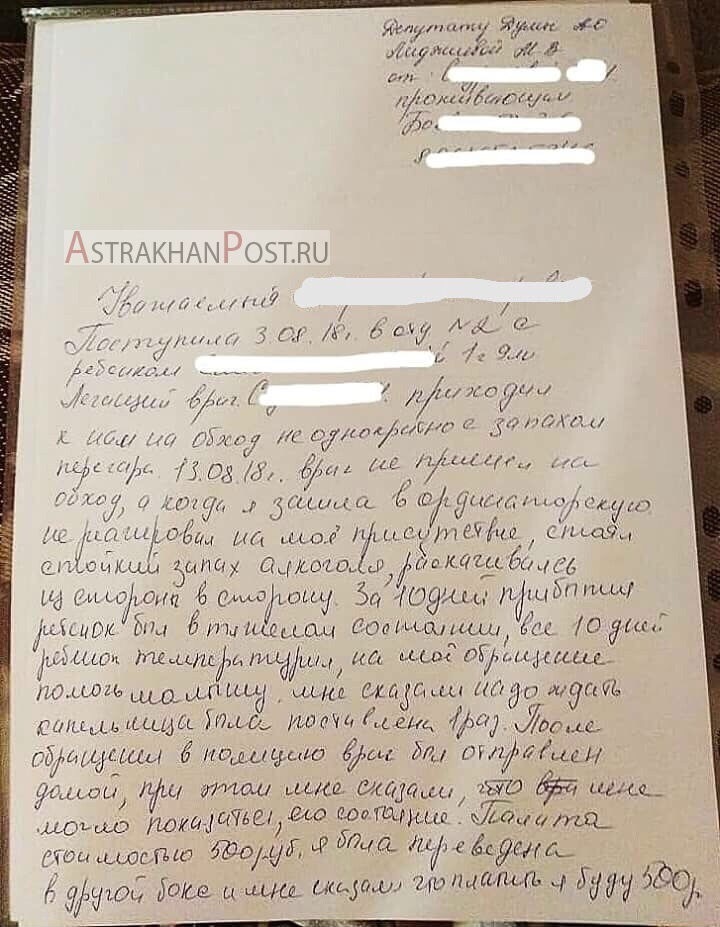 Депутату Думы АО
Лиджиевой М. В
от С
проживающим
Бо
ASTRAKHANPOST.RU
Уважаемый
Поступила 3.08.18г. в отд N2 с
ребенком 1г 9м
Легащий врач С приходил
к нам на обход не однократно с запахом
перегара. 13.08.18г. врач не пришел на
обход, а когда я зашла в ординаторскую
не реагировал на моё присутствие, стоял
стойкий запах алкоголя, раскачиваясь
из стороны в сторону. За 10 дней прибытия
ребенок был в тяжелом состоянии, все 10 дней
ребенок температурил, на моё обращение
помочь малышу мне сказали надо ждать
капельница была поставлена 1 раз. После
обращения в полицию врач был отправлен
домой, при этом мне сказали, что мне
могло показаться, его состояние. Палата
стоимостью 500 руб. я была переведена
в другой бокс и мне сказали что платить я буду 500р